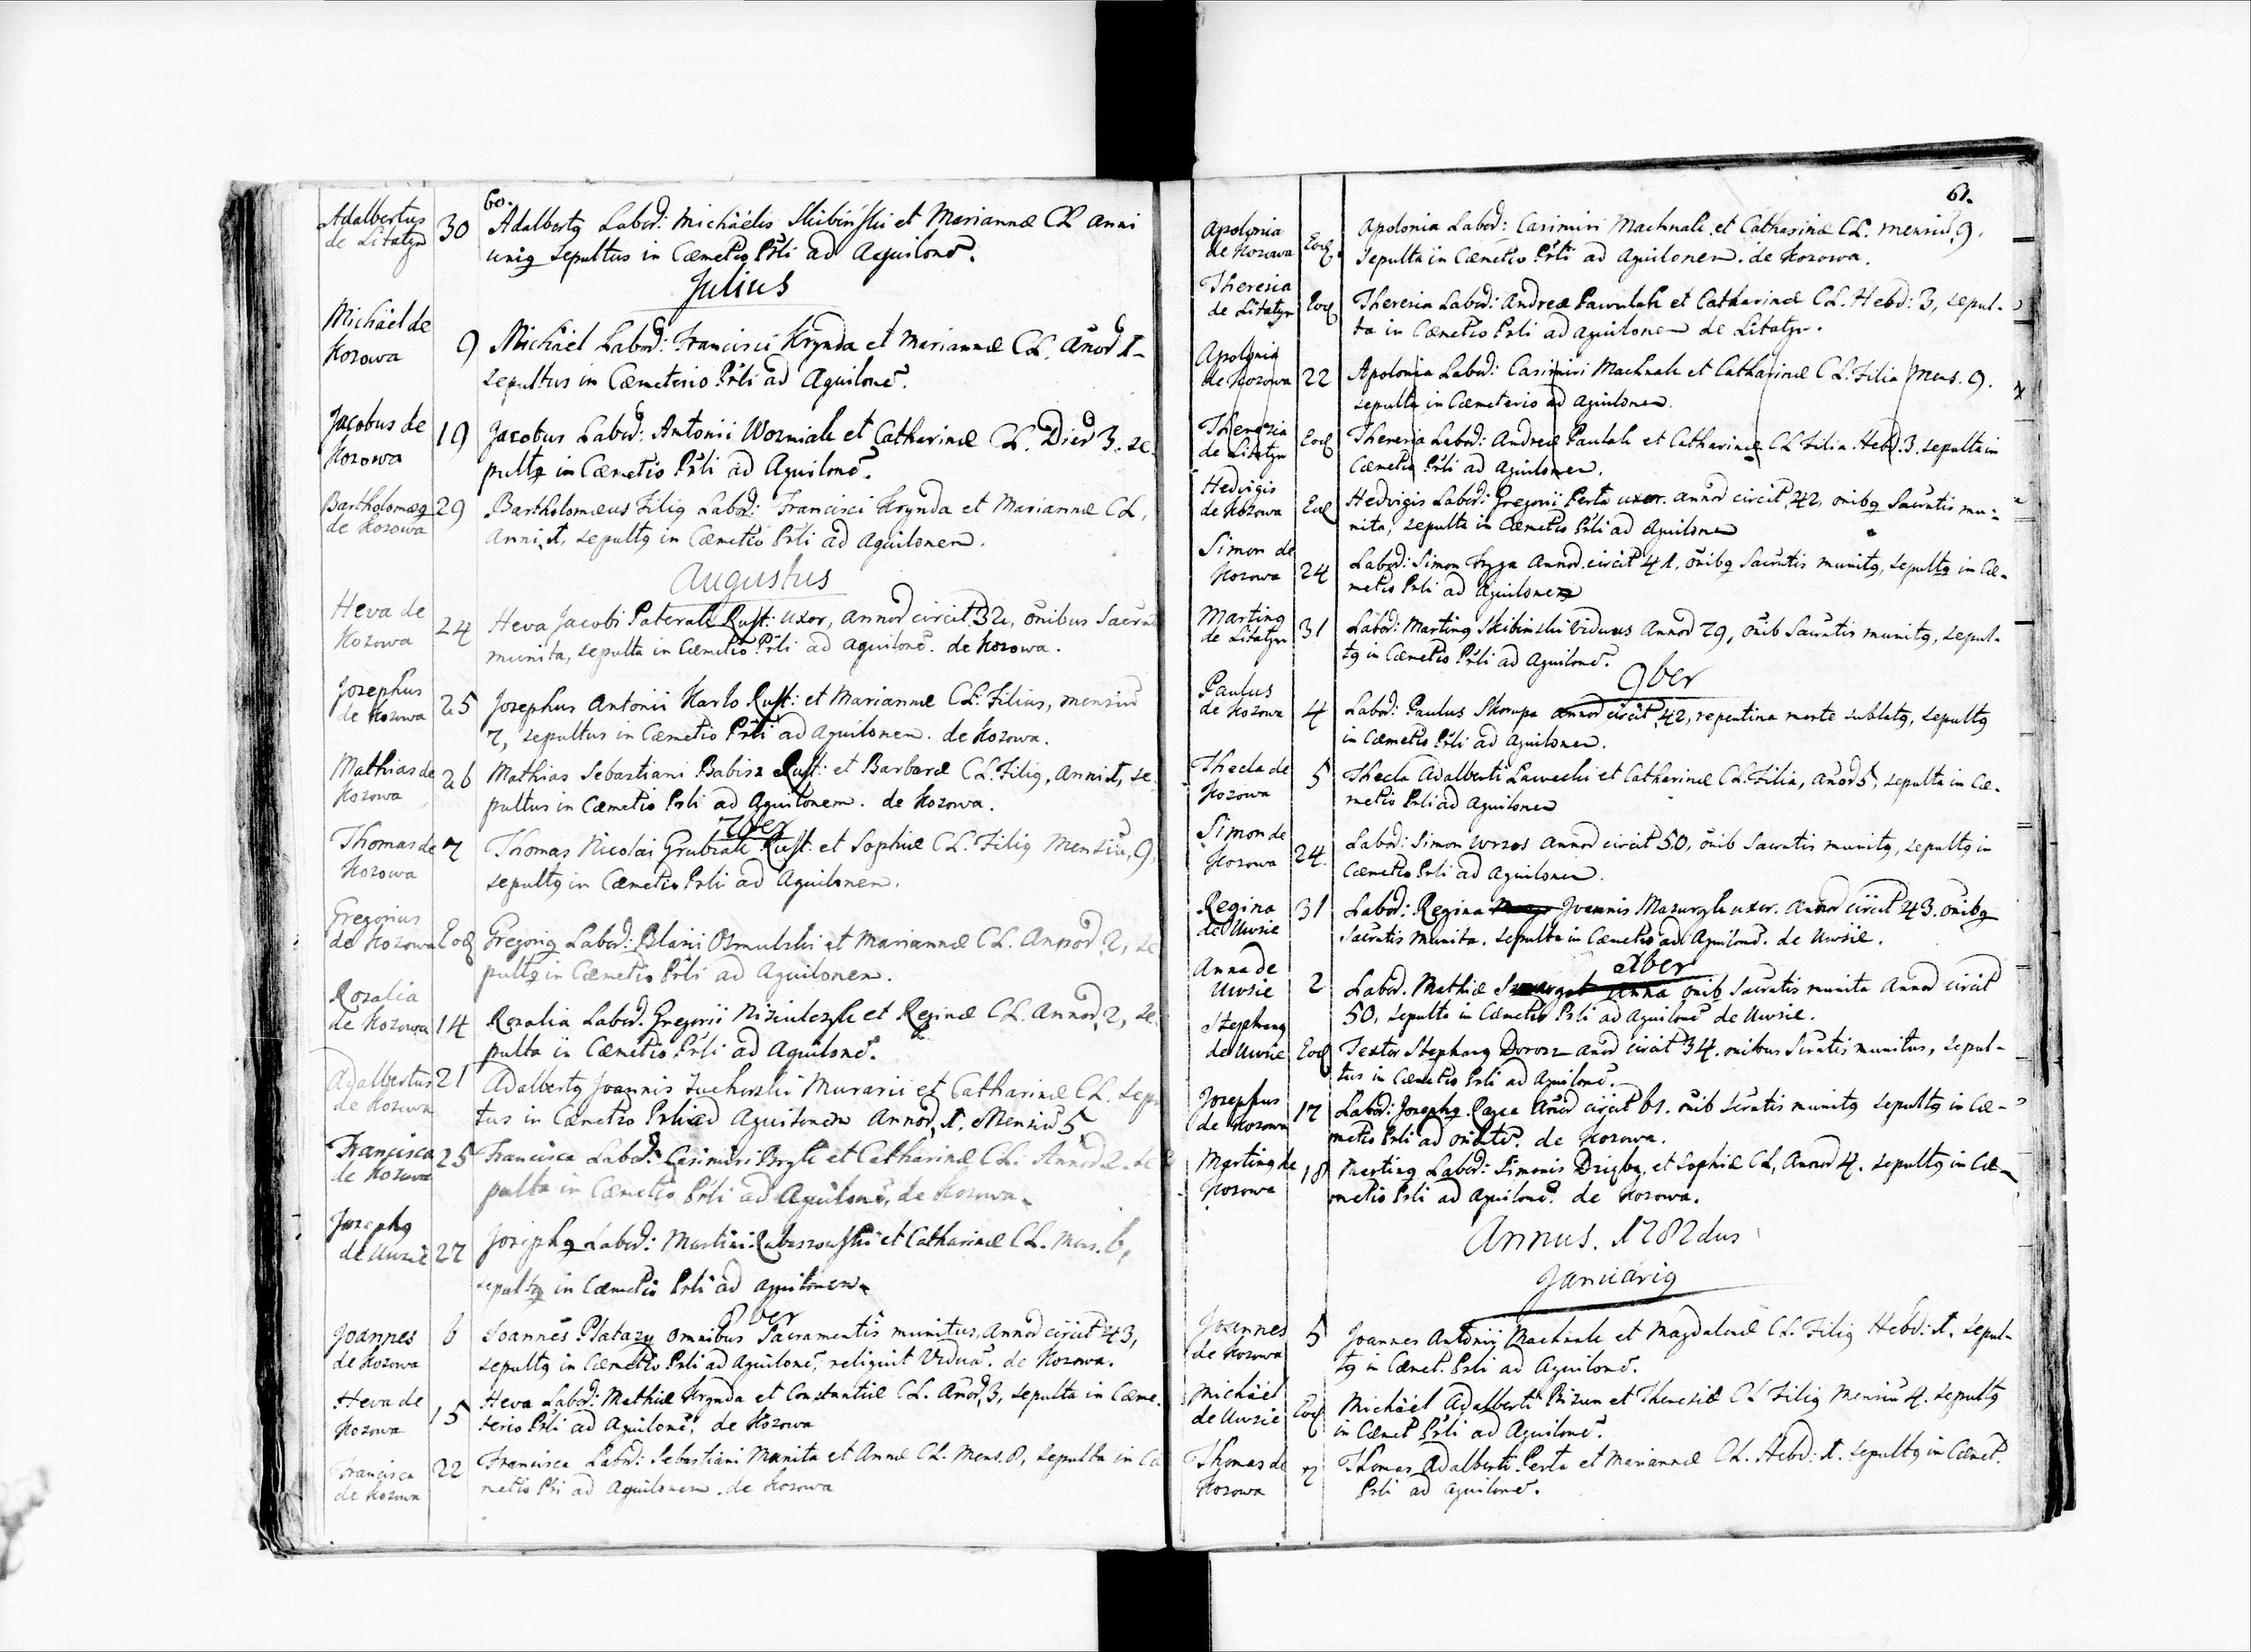 60.
Adalbertus
de Litatyn
30
Adalbertq Labord: Michaëlis Skibinski et Mariannæ CL anni
uniq sepultus in Cæmetio Prli ad Aquilonē.
Julius
Michäel de
Kozowa
9
Michäel Labord: Francisci Krynda et Mariannæ CL. Anōr 1-
sepultus in Cæmeterio Prli ad Aquilonē.
Jacobus de
Kozowa
19
Jacobus Labord: Antonii Wozniak et Catharinæ CL. Dier 3. se
pultq in Cæmetio Prli ad Aquilonē.
Bartholomæq
de Kozowa
29
Bartholomæus Filiq Labord: Francisci Krynda et Mariannæ CL,
Anni 1, sepultq in Cæmetio Prli ad Aquilonem.
Augustus
Heva de
Kozowa
24
Heva Jacobi Paterak Rust: uxor, annor circit 32, ōnibus Sacra
munita, sepulta in Cæmetio Prli ad aquilonē. de Kozowa.
Josephus
de Kozowa
25
Josephus Antonii Karlo Rust: et Mariannæ CL: Filius, mensiū
7, sepultus in Cæmetio Prli ad aquilonem. de Kozowa.
Mathias de
Kozowa
26
Mathias Sebastiani Babisz Rust: et Barbaræ CL. Filiq, anni 1, se
pultus in Cæmetio Prli ad Aquilonem. de Kozowa.
7ber
Thomas de
Kozowa
7
Thomas Nicolai Grubiak Rust. et Sophiæ CL. Filiq Mensiū, 9,
sepultq in Cæmetio Prli ad Aquilonem.
Gregorius
de Kozowa
Eod
Gregoriq Labord: Blasii Osmulski et Mariannæ CL. Annor 2, se
pultq in Cæmetio Prli ad Aquilonem.
Rozalia
de Kozowa
14
Rozalia Labord. Gregorii Niziulczyk et Reginæ CL. Annor 2, se
pulta in Cæmetio Prli ad Aquilonē.
Adalbertus
de Kozowa
21
Adalbertq Joannis Murarii et Catharinæ CL. Sepu
tus in Cæmetio Prli ad Aquilonem Annor, 1. Mensiū 5
Francisca
de Kozowa
25
Francisca Labord: Casimiri Bryk et Catharinæ CL: Annor 2. se
pulta in Cæmetio Prli ad Aquilonē, de Kozowa.
Josephq
de Uwsie
27
Josephq Labord: Martini et Catharinæ CL. Mens. 6,
sepultq in Cæmetio Prli ad aquilonem.
8ber
Joannes
de Kozowa
6
Joannes Platazy omnibus Sacramentis munitus, Annor circit 43,
sepultq in Cæmetio Prli ad Aquilonē, reliquit Viduā. de Kozowa.
Heva de
Kozowa
15
Heva Labord: Mathiæ Krynda et Constantiæ CL. Anōr, 3, sepulta in Cæme.
terio Prli ad Aquilonē, de Kozowa
Francisca
de Kozowa
22
Francisca Labord: Sebastiani Manita et Annæ CL. Mens. 8, sepulta in Cæ
metio Prli ad Aquilonem. de Kozowa
61.
Apolonia
de Kozowa
Eod.
Apolonia Labord: Casimiri Machnak et Catharinæ CL. mensiū 9,
sepulta in Cæmetio Prli ad Aquilonem. de Kozowa.
Theresia
de Litatyn
Eod
Theresia Labord: Andreæ Pawulak et Catharinæ CL. Hebd: 3, sepul-
ta in Cæmetio Prli ad aquilonem de Litatyn.
Apolonia
de Kozowa
22
Apolonia Labord: Casimiri Machnak et Catharinæ CL. Filia Mens. 9.
sepulta in Cæmeterio ad Aquilonem.
Theresia
de Litatyn
Eod
Theresia Labord: Andreæ Paulak et Catharinæ CL Filia. Hebd. 3. sepulta in
Cæmetio Prli ad Aquilonem.
Hedvigis
de Kozowa
Eod
Hedvigis Labord: Gregorii Perta uxor. annor circit 42, ōnibq Sacratis mu-
nita, sepulta in Cæmetio Prli ad Aquilonem
Simon de
Kozowa
24
Labord: Simon Annor circit 41, ōnibq Sacratis munitq, sepultq in Cæ-
metio Prli ad Aquilonem
Martinq
de Litatyn
31
Labord: Martinq Skibinski Viduus Annor 79, ōnib Sacratis munitq, sepul-
tq in Cæmetio Prli ad Aquilonē.
9ber
Paulus
de Kozowa
4
Labord: Paulus Skorupa annor circit 42, repentina morte sublatq, sepultq
in Cæmetio Prli ad Aquilonem.
Thecla de
Kozowa
5
Thecla Adalberti Lawecki et Catharinæ CL. Filia, Anōr 5, sepulta in Cæ-
metio Prli ad Aquilonem
Simon de
Kozowa
24.
Labord: Simon Wrzos Annor circit 50, ōnib Sacratis munitq, sepultq in
Cæmetio Prli ad Aquilonem.
Regina
de Uwsie
31
Labord: Regina Joannis Mazuryk uxor. Annor circit 43. ōnibq
Sacratis munita. sepulta in Cæmetio ad Aquilonē. de Uwsie.
Xber
Anna de
Uwsie
2
Labord. Mathiæ Anna ōnib Sacratis munita Annor circit
50, sepulta in Cæmetio Prli ad Aquilonē de Uwsie.
Stephanq
de Uwsie
Eod
Textor Stephanq Dorosz anōr circit 34. ōnibus Scratis munitus, sepul-
tus in Cæmetio Prli ad Aquilonē.
Josephus
de Kozowa
17
Labord: Josephq Anōr circit 61. ōnib Scratis munitq sepultq in Cæ-
metio Prli ad orientē. de Kozowa.
Martinq de
Kozowa
18
Martinq Labord: Simonis Dzigba, et Sophiæ CL, Annor 4. sepultq in Cæ-
metio Prli ad Aquilonē. de Kozowa.
Annus. 1782dus
Januariq
Joannes
de Kozowa
5
Joannes Antonii Machnak et Magdalenæ CL. Filiq Hebd: 1. sepul-
tq in Cæmet. Prli ad Aquilonē.
Michäel
de Uwsie
Eod
Michäel Adalberti Bizun et Theresiæ CL Filiq Mensiū 4. sepultq
in Cæmet Prli ad Aquilonē.
Thomas de
Kozowa
7
Thomas Adalberti Perta et Mariannæ CL. Hebd: 1. sepultq in Cæmet.
Prli ad Aquilonē.